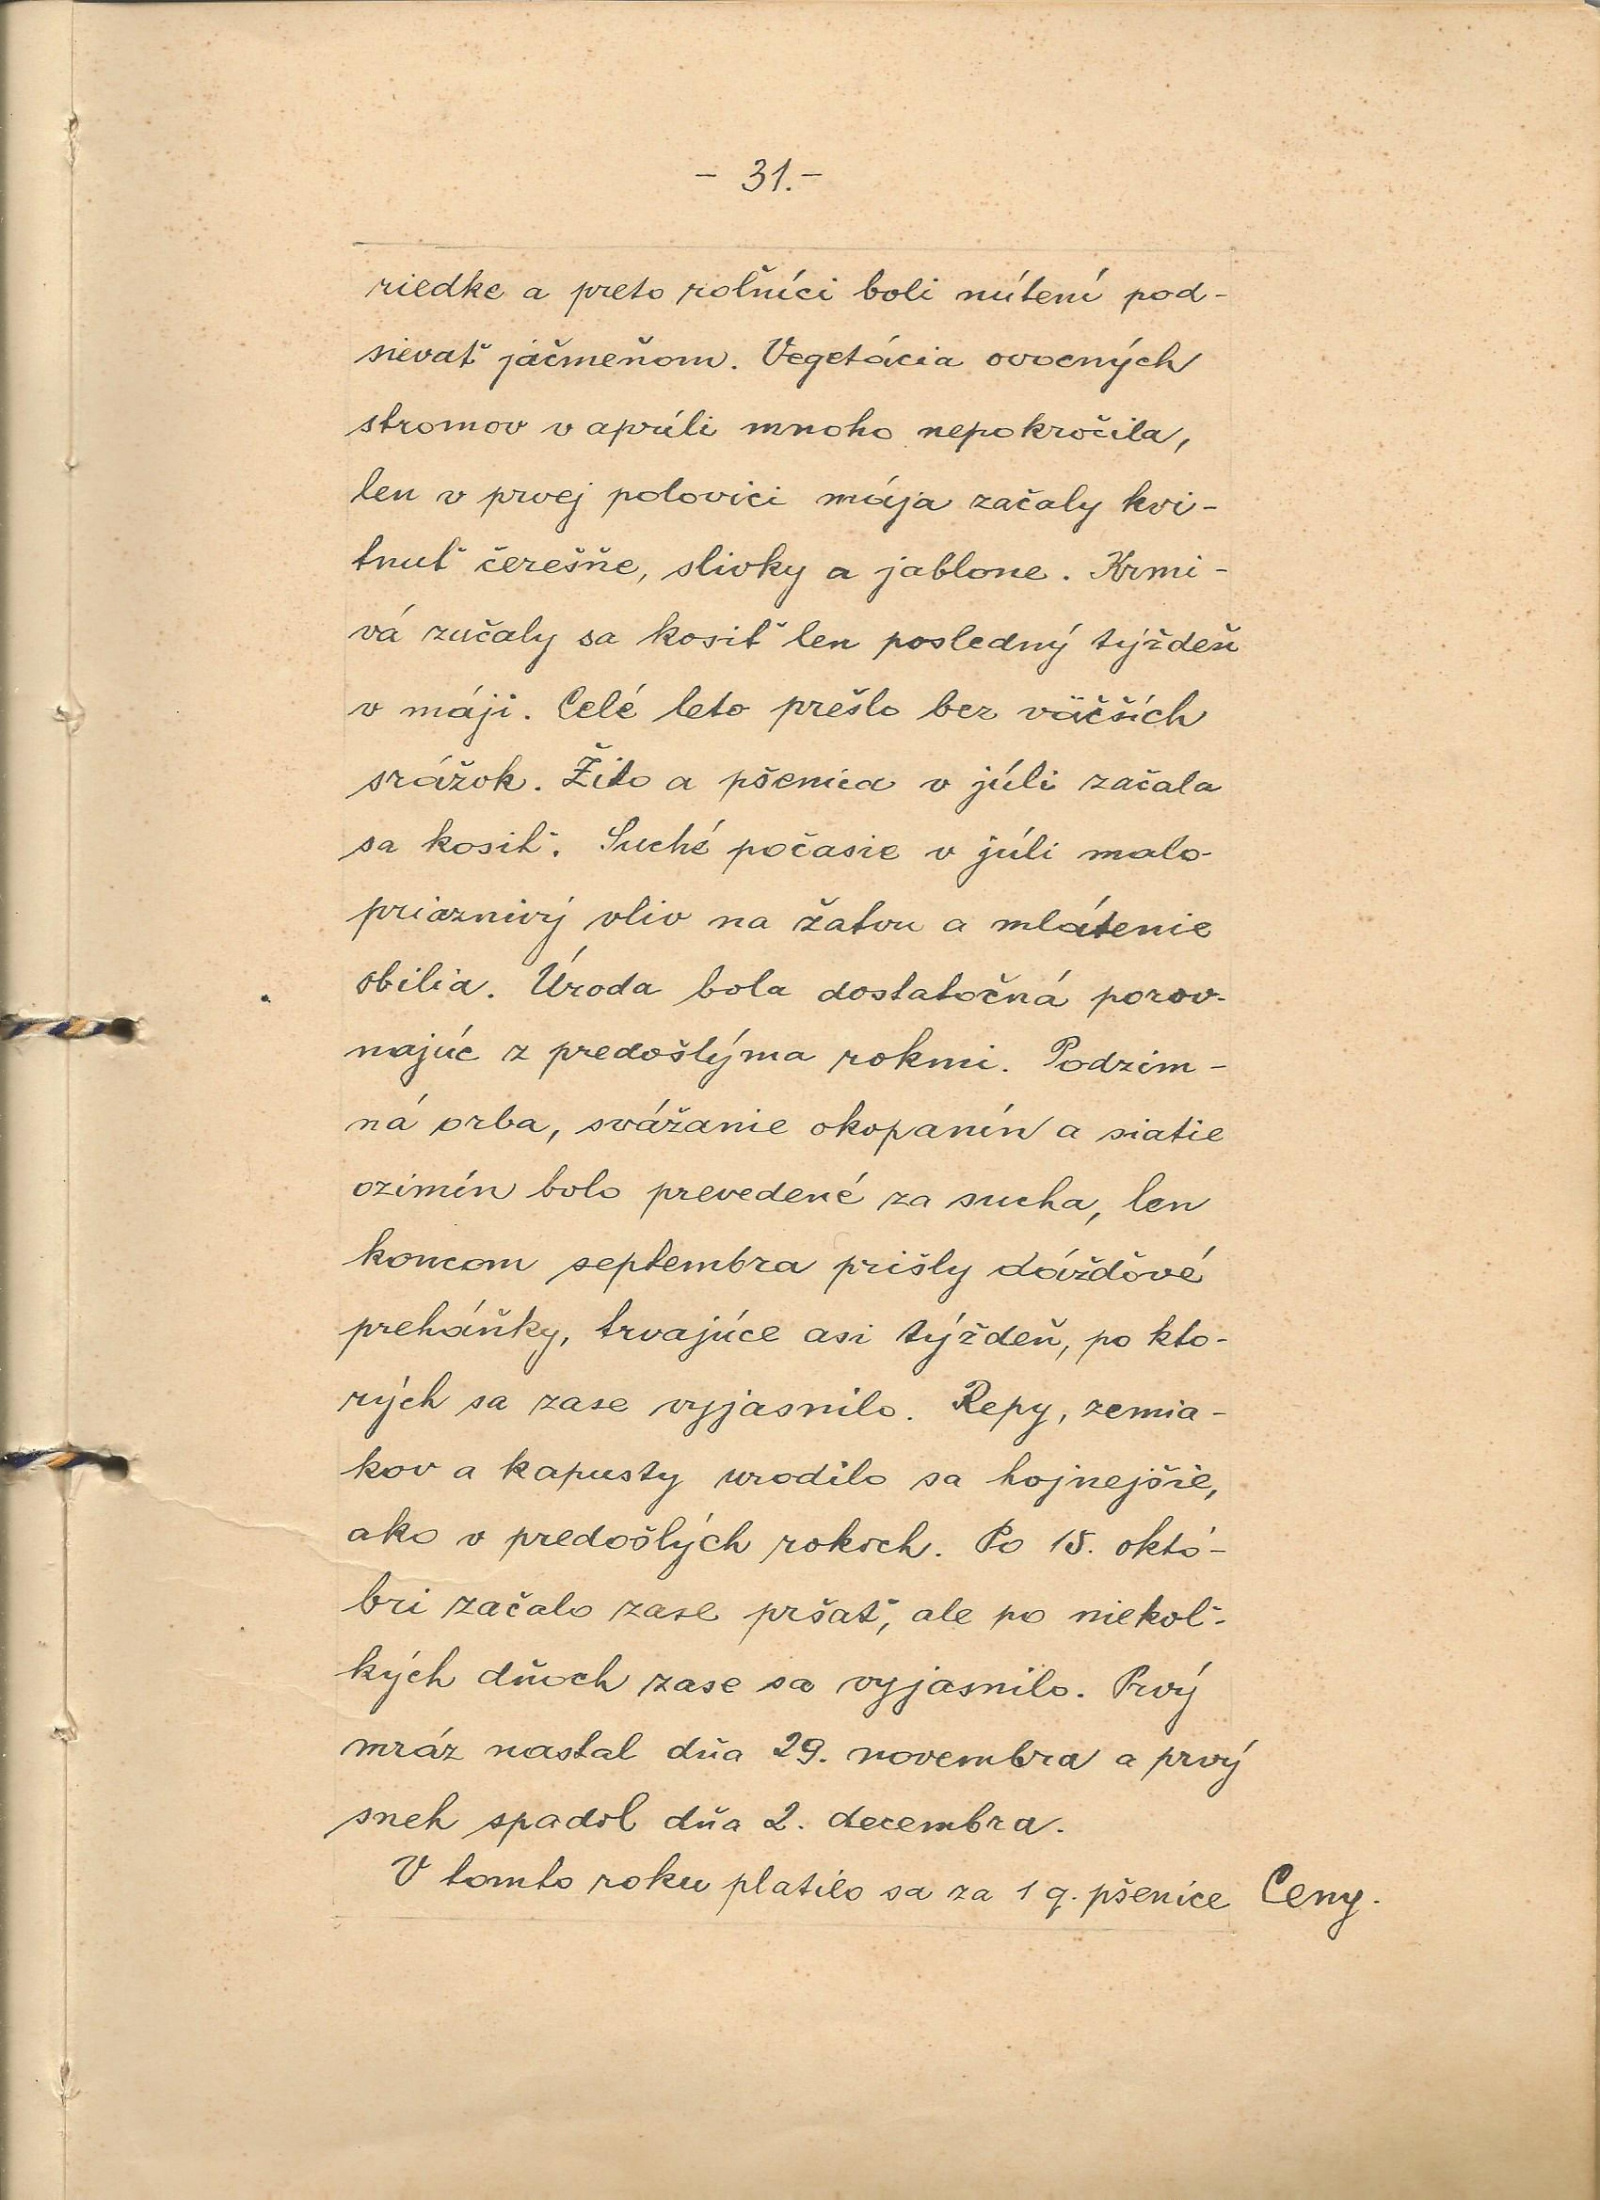 - 31. -
riedke a preto roľníci boli nútení pod-
sievať jačmeňom. Vegetácia ovocných
stromov v apríli mnoho nepokročila,
len v prvej polovici mája začaly kvi-
tnuť čerešňe, slivky a jablone. Krmi-
vá začaly sa kosiť len posledný týždeň
v máji. Celé leto prešlo bez väčších
srážok. Žito a pšenica v júli začala
sa kosiť. Suché počasie v júli malo
priaznivý vliv na žatvu a mlátenie
obilia. Úroda bola dostatočná porov-
najúc z predošlýma rokmi. Podzim-
ná orba, svážanie okopanín a siatie
ozimín bolo prevedené za sucha, len
koncom septembra prišly dážďové
preháňky, trvajúce asi týždeň, po kto-
rých sa zase vyjasnilo. Repy, zemia-
kov a kapusty urodilo sa hojnejšie,
ako v predošlých rokoch. Po 15. októ-
bri začalo zase pršať, ale po niekoľ-
kých dňoch zase sa vyjasnilo. Prvý
mráz nastal dňa 29. novembra a prvý
sneh spadol dňa 2. decembra.
V tomto roku platilo sa za 1 q. pšenice Ceny.